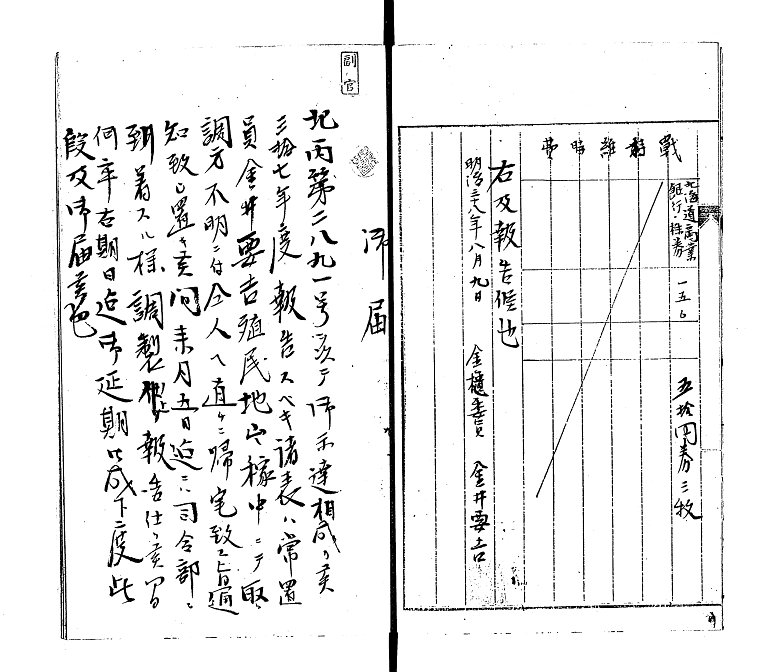 北海道商業
銀行・株券
一五〇
五拾円券三枚
右及報告候也
明治三十八年八月九日
金櫃委員 金井要吉
副官
御届
北丙第二八九一号ヲ以テ御示達相成候
三拾七年度報告スベキ諸表ハ常置
員金井要吉殖民地出稼中ニテ取
調方不明ニ付仝人ヘ直ケニ帰宅致ス旨通
知致シ置キ候間来月五日迄ニハ司令部ニ
到着スル様調製報告仕候間
何卒右期日迄御延期被成下度此
段及御届候也